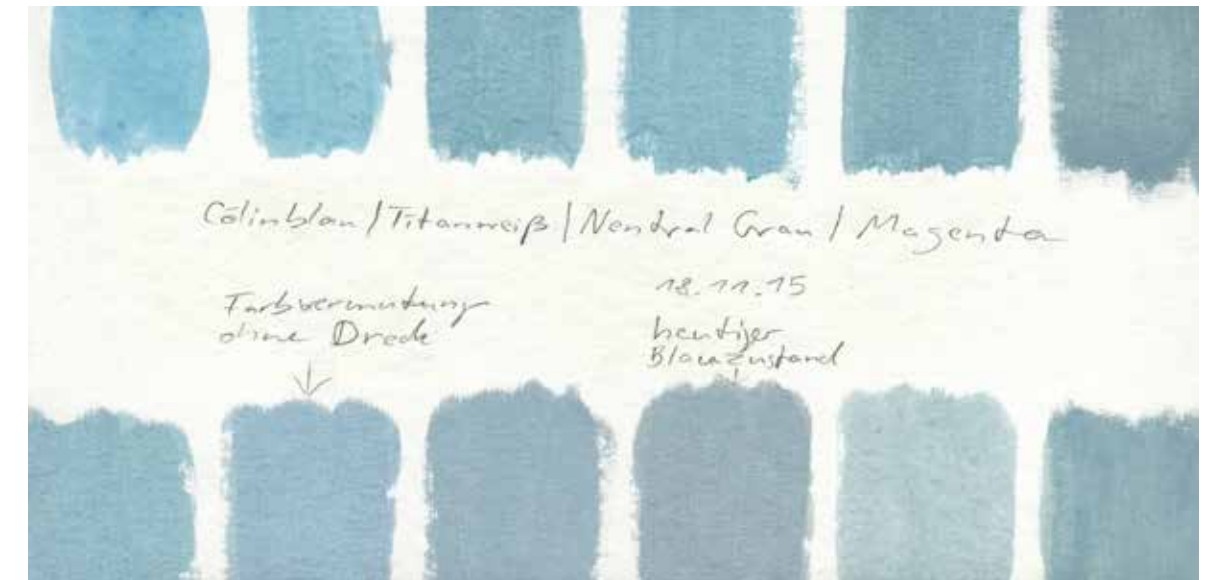 Cölinblau / Titanweiß / Neutral Grau / Magenta
18.11.15
Farbvermutung
ohne Dreck
heutiger
Blauzustand